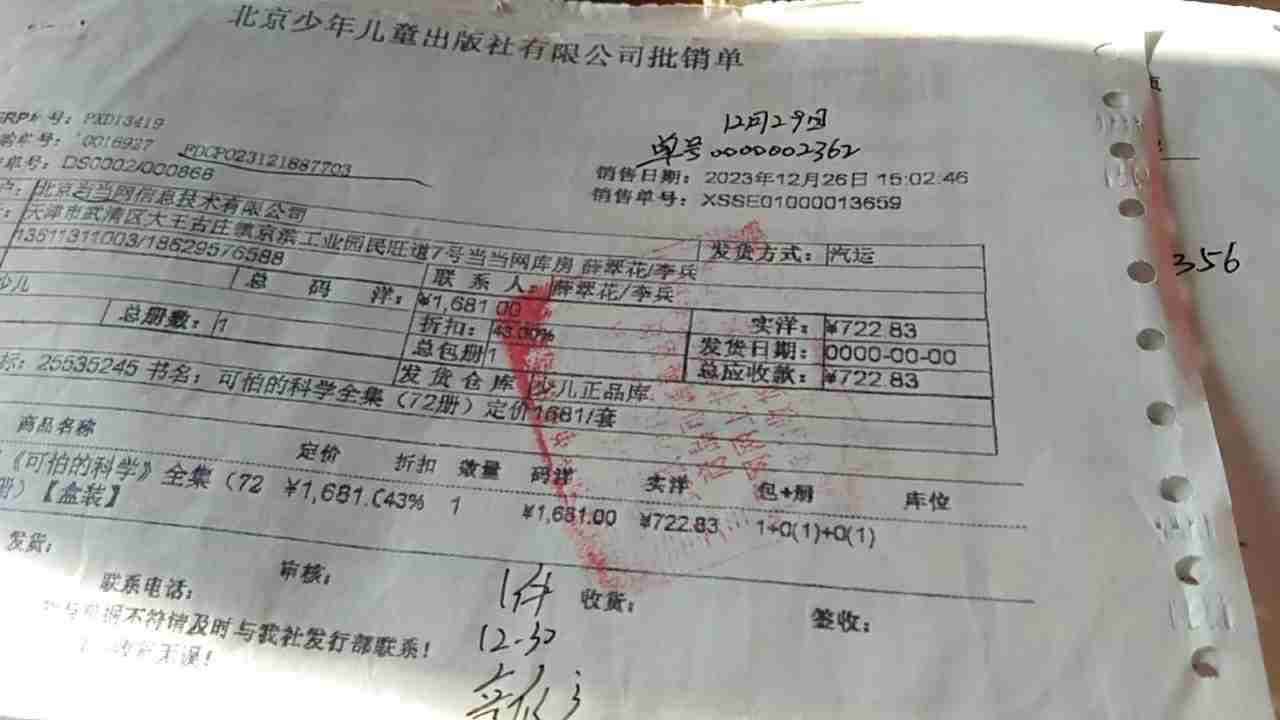 北京少年儿童出版社有限公司批销单
12月29日
单号0000002362
ERP单号：PXD13419
0016927 PDCP023121887703
单号：DS0002/000868
销售日期：2023年12月26日 15:02:46
销售单号：XSSE01000013659
户：北京当当网信息技术有限公司
天津市武清区大王古庄镇京滨工业园民旺道7号当当网库房 薛翠花/李兵 发货方式：汽运
13511311003/18629576588 联系人：薛翠花/李兵
少儿 总码洋：¥1,681.00
356
总册数：1 折扣：43.00% 实洋：¥722.83
总包册 1 发货日期：0000-00-00
发货仓库 少儿正品库 总应收款：¥722.83
标：25535245 书名：可怕的科学全集（72册）定价1681/套
商品名称 定价 折扣 数量 码洋 实洋 包+册 库位
《可怕的科学》全集（72 ¥1,681.0 43% 1 ¥1,681.00 ¥722.83 1+0(1)+0(1)
册）【盒装】
发货： 审核： 1件 收货： 签收：
联系电话： 12-30
单据不符请及时与我社发行部联系！
无误！